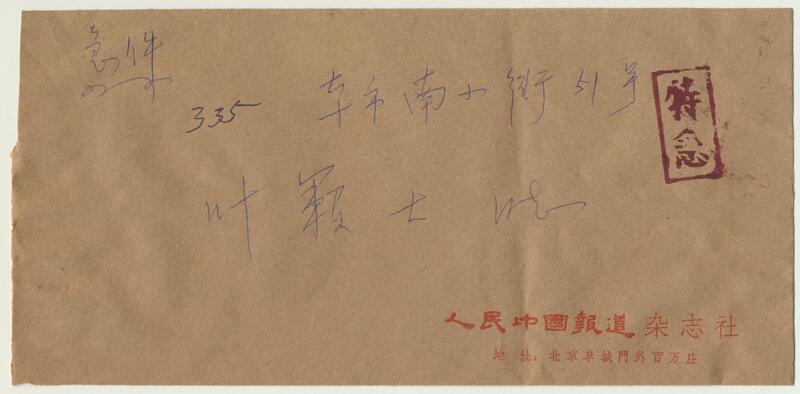 急件
特急
335 本市南小街51号
叶籁士 同志
人民中國報道 杂志社
地 址：北京阜城門外百万庄